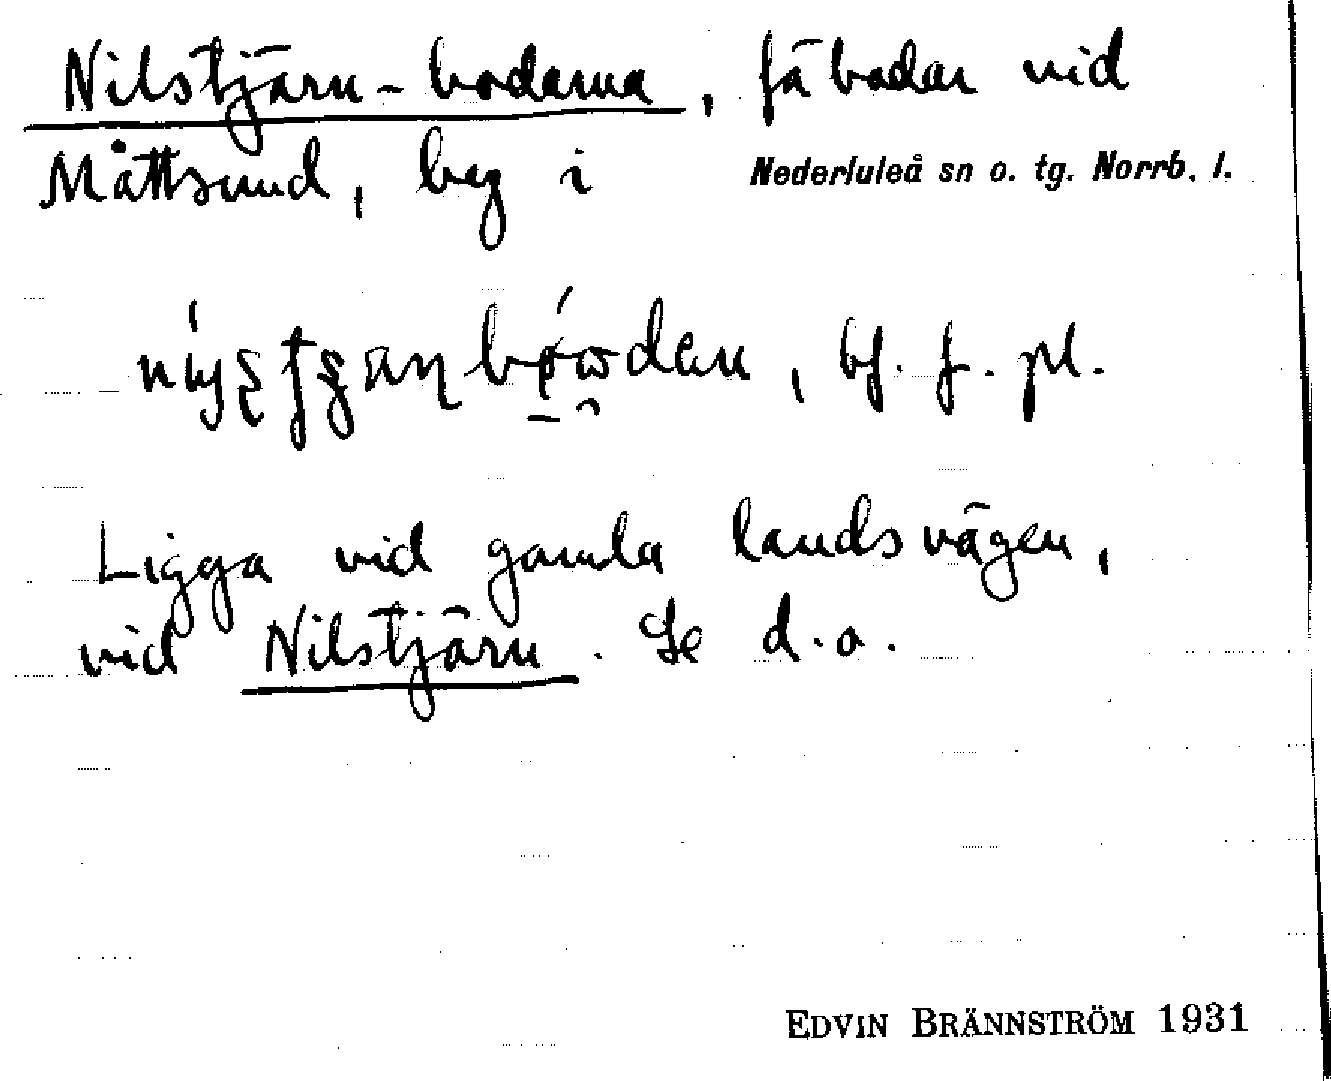 Nilstjärn-bodarna, fäbodar vid
Mattsund, by i Nederluleå sn o. tg. Norrb. l.
bf. f. pl.
Ligga vid gamla landsvägen,
vid Nilstjärn. Se d.o.
EDVIN BRÄNNSTRÖM 1931